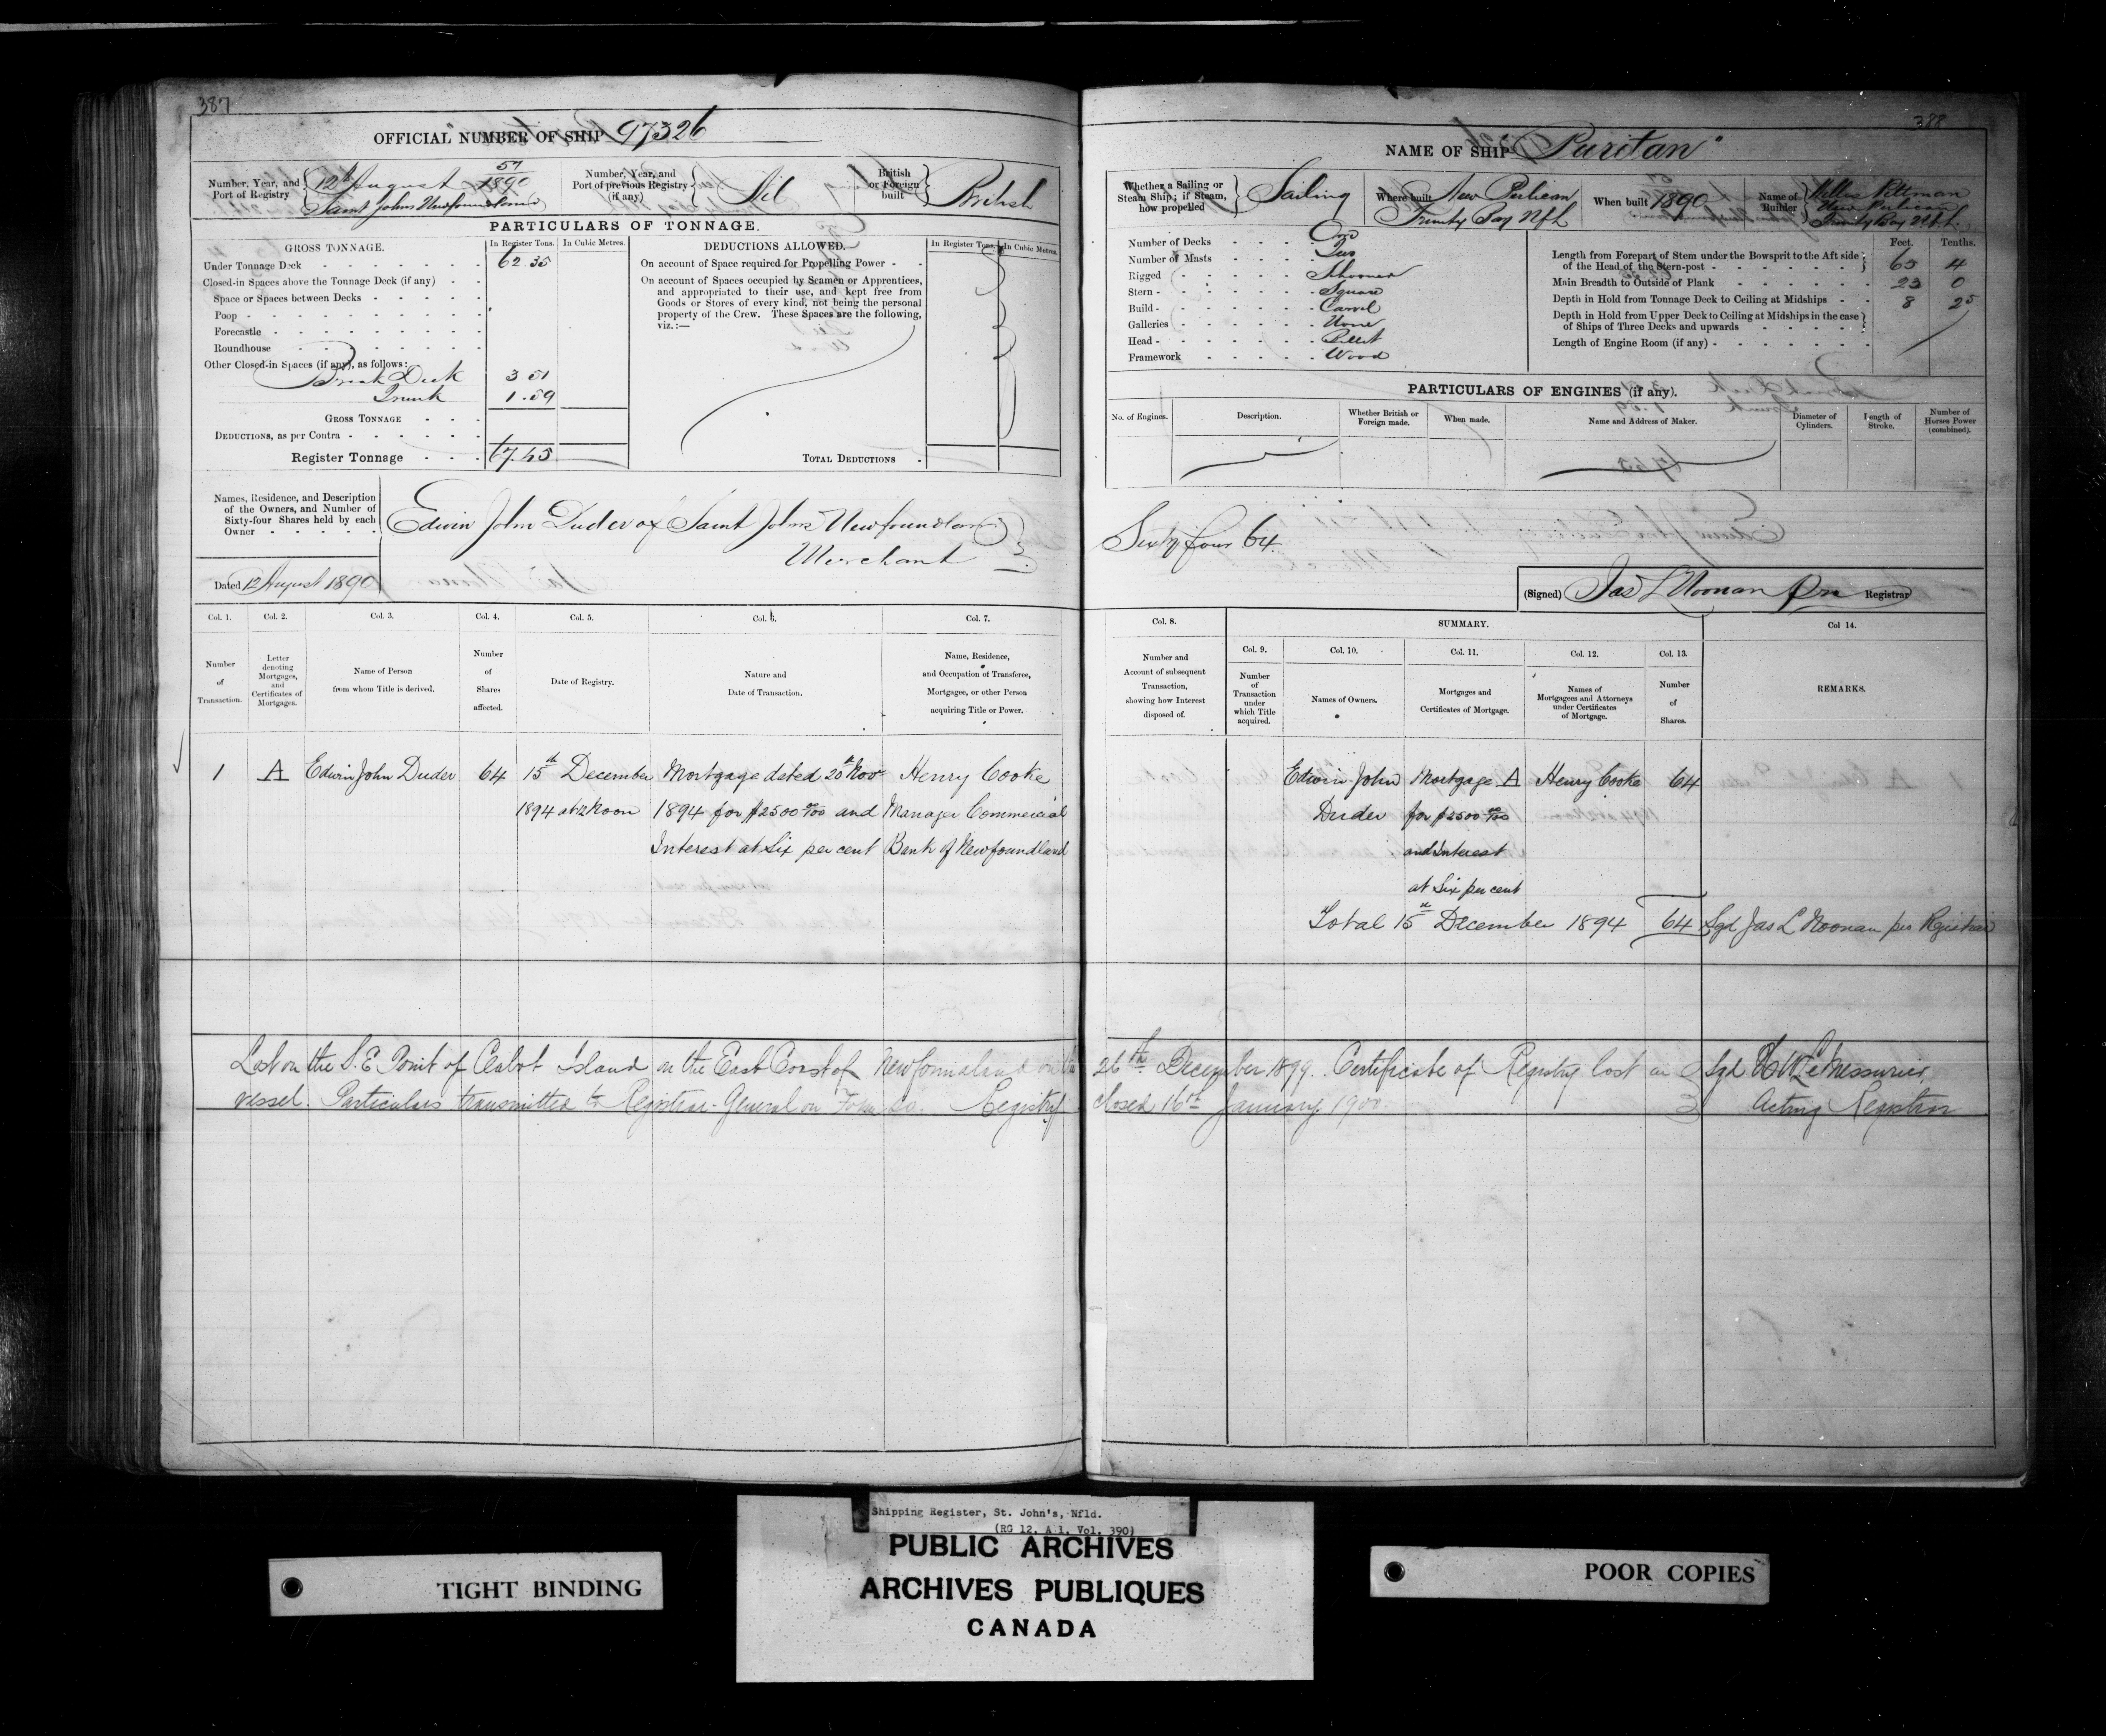 387
OFFICIAL NUMBER OF SHIP 97326
Number, Year, and Port of Registry
57
12th August 1890
Saint Johns Newfoundland
Number, Year, and Port of previous Registry (if any)
Nil
British or Foreign built
British
PARTICULARS OF TONNAGE.
GROSS TONNAGE.
In Register Tons.
In Cubic Metres.
DEDUCTIONS ALLOWED.
In Register Tons.
In Cubic Metres.
Under Tonnage Deck 62.35
Closed-in Spaces above the Tonnage Deck (if any)
Space or Spaces between Decks
Poop
Forecastle
Roundhouse
Other Closed-in Spaces (if any), as follows:
Break Deck 3 51
Trunk 1.59
GROSS TONNAGE
DEDUCTIONS, as per Contra
Register Tonnage 67.45
On account of Space required for Propelling Power
On account of Spaces occupied by Seamen or Apprentices,
and appropriated to their use, and kept free from
Goods or Stores of every kind, not being the personal
property of the Crew. These Spaces are the following,
viz.:—
TOTAL DEDUCTIONS
Names, Residence, and Description
of the Owners, and Number of
Sixty-four Shares held by each
Owner
Edwin John Duder of Saint Johns Newfoundland
Merchant
Dated 12 August 1890
Col. 1.
Col. 2.
Col. 3.
Col. 4.
Col. 5.
Col. 6.
Col. 7.
Number of Transaction.
Letter denoting Mortgages, and Certificates of Mortgages.
Name of Person from whom Title is derived.
Number of Shares affected.
Date of Registry.
Nature and Date of Transaction.
Name, Residence, and Occupation of Transferee, Mortgagee, or other Person acquiring Title or Power.
1 A Edwin John Duder 64 15th December Mortgage dated 20th Nov Henry Cooke
1894 at 12 Noon 1894 for $2500 00/100 and Manager Commercial
Interest at Six per cent Bank of Newfoundland
Lost on the S.E. Point of Cabot Island on the East Coast of Newfoundland on the
vessel. Particulars transmitted to Registrar-General on Form 20. Registry
388
NAME OF SHIP "Puritan"
Whether a Sailing or Steam Ship; if Steam, how propelled
Sailing
Where built
New Perlican
Trinity Bay Nfld
When built 1890
Name of Builder
Pittman
New Perlican
Trinity Bay Nfld.
Number of Decks One
Number of Masts Two
Rigged Schooner
Stern Square
Build Carvel
Galleries None
Head Billet
Framework Wood
Feet. Tenths.
Length from Forepart of Stem under the Bowsprit to the Aft side
of the Head of the Stern-post 65 4
Main Breadth to Outside of Plank 23 0
Depth in Hold from Tonnage Deck to Ceiling at Midships 8 25
Depth in Hold from Upper Deck to Ceiling at Midships in the case
of Ships of Three Decks and upwards
Length of Engine Room (if any)
PARTICULARS OF ENGINES (if any).
No. of Engines.
Description.
Whether British or Foreign made.
When made.
Name and Address of Maker.
Diameter of Cylinders.
Length of Stroke.
Number of Horses Power (combined).
Sixty four 64
(Signed) Jas L Noonan pro Registrar
Col. 8.
SUMMARY.
Col 14.
Col. 9.
Col. 10.
Col. 11.
Col. 12.
Col. 13.
Number and Account of subsequent Transaction, showing how Interest disposed of.
Number of Transaction under which Title acquired.
Names of Owners.
Mortgages and Certificates of Mortgage.
Names of Mortgagees and Attorneys under Certificates of Mortgage.
Number of Shares.
REMARKS.
Edwin John Mortgage A Henry Cooke 64
Duder for $2500 00/100
and Interest
at Six per cent
Total 15th December 1894 64 Sgd Jas L Noonan pro Registrar
26th December 1899. Certificate of Registry lost in Sgd H W LeMessurier
closed 16th January 1900. Acting Registrar
Shipping Register, St. John's, Nfld.
(RG 12, A 1, Vol. 390)
PUBLIC ARCHIVES
ARCHIVES PUBLIQUES
CANADA
TIGHT BINDING
POOR COPIES